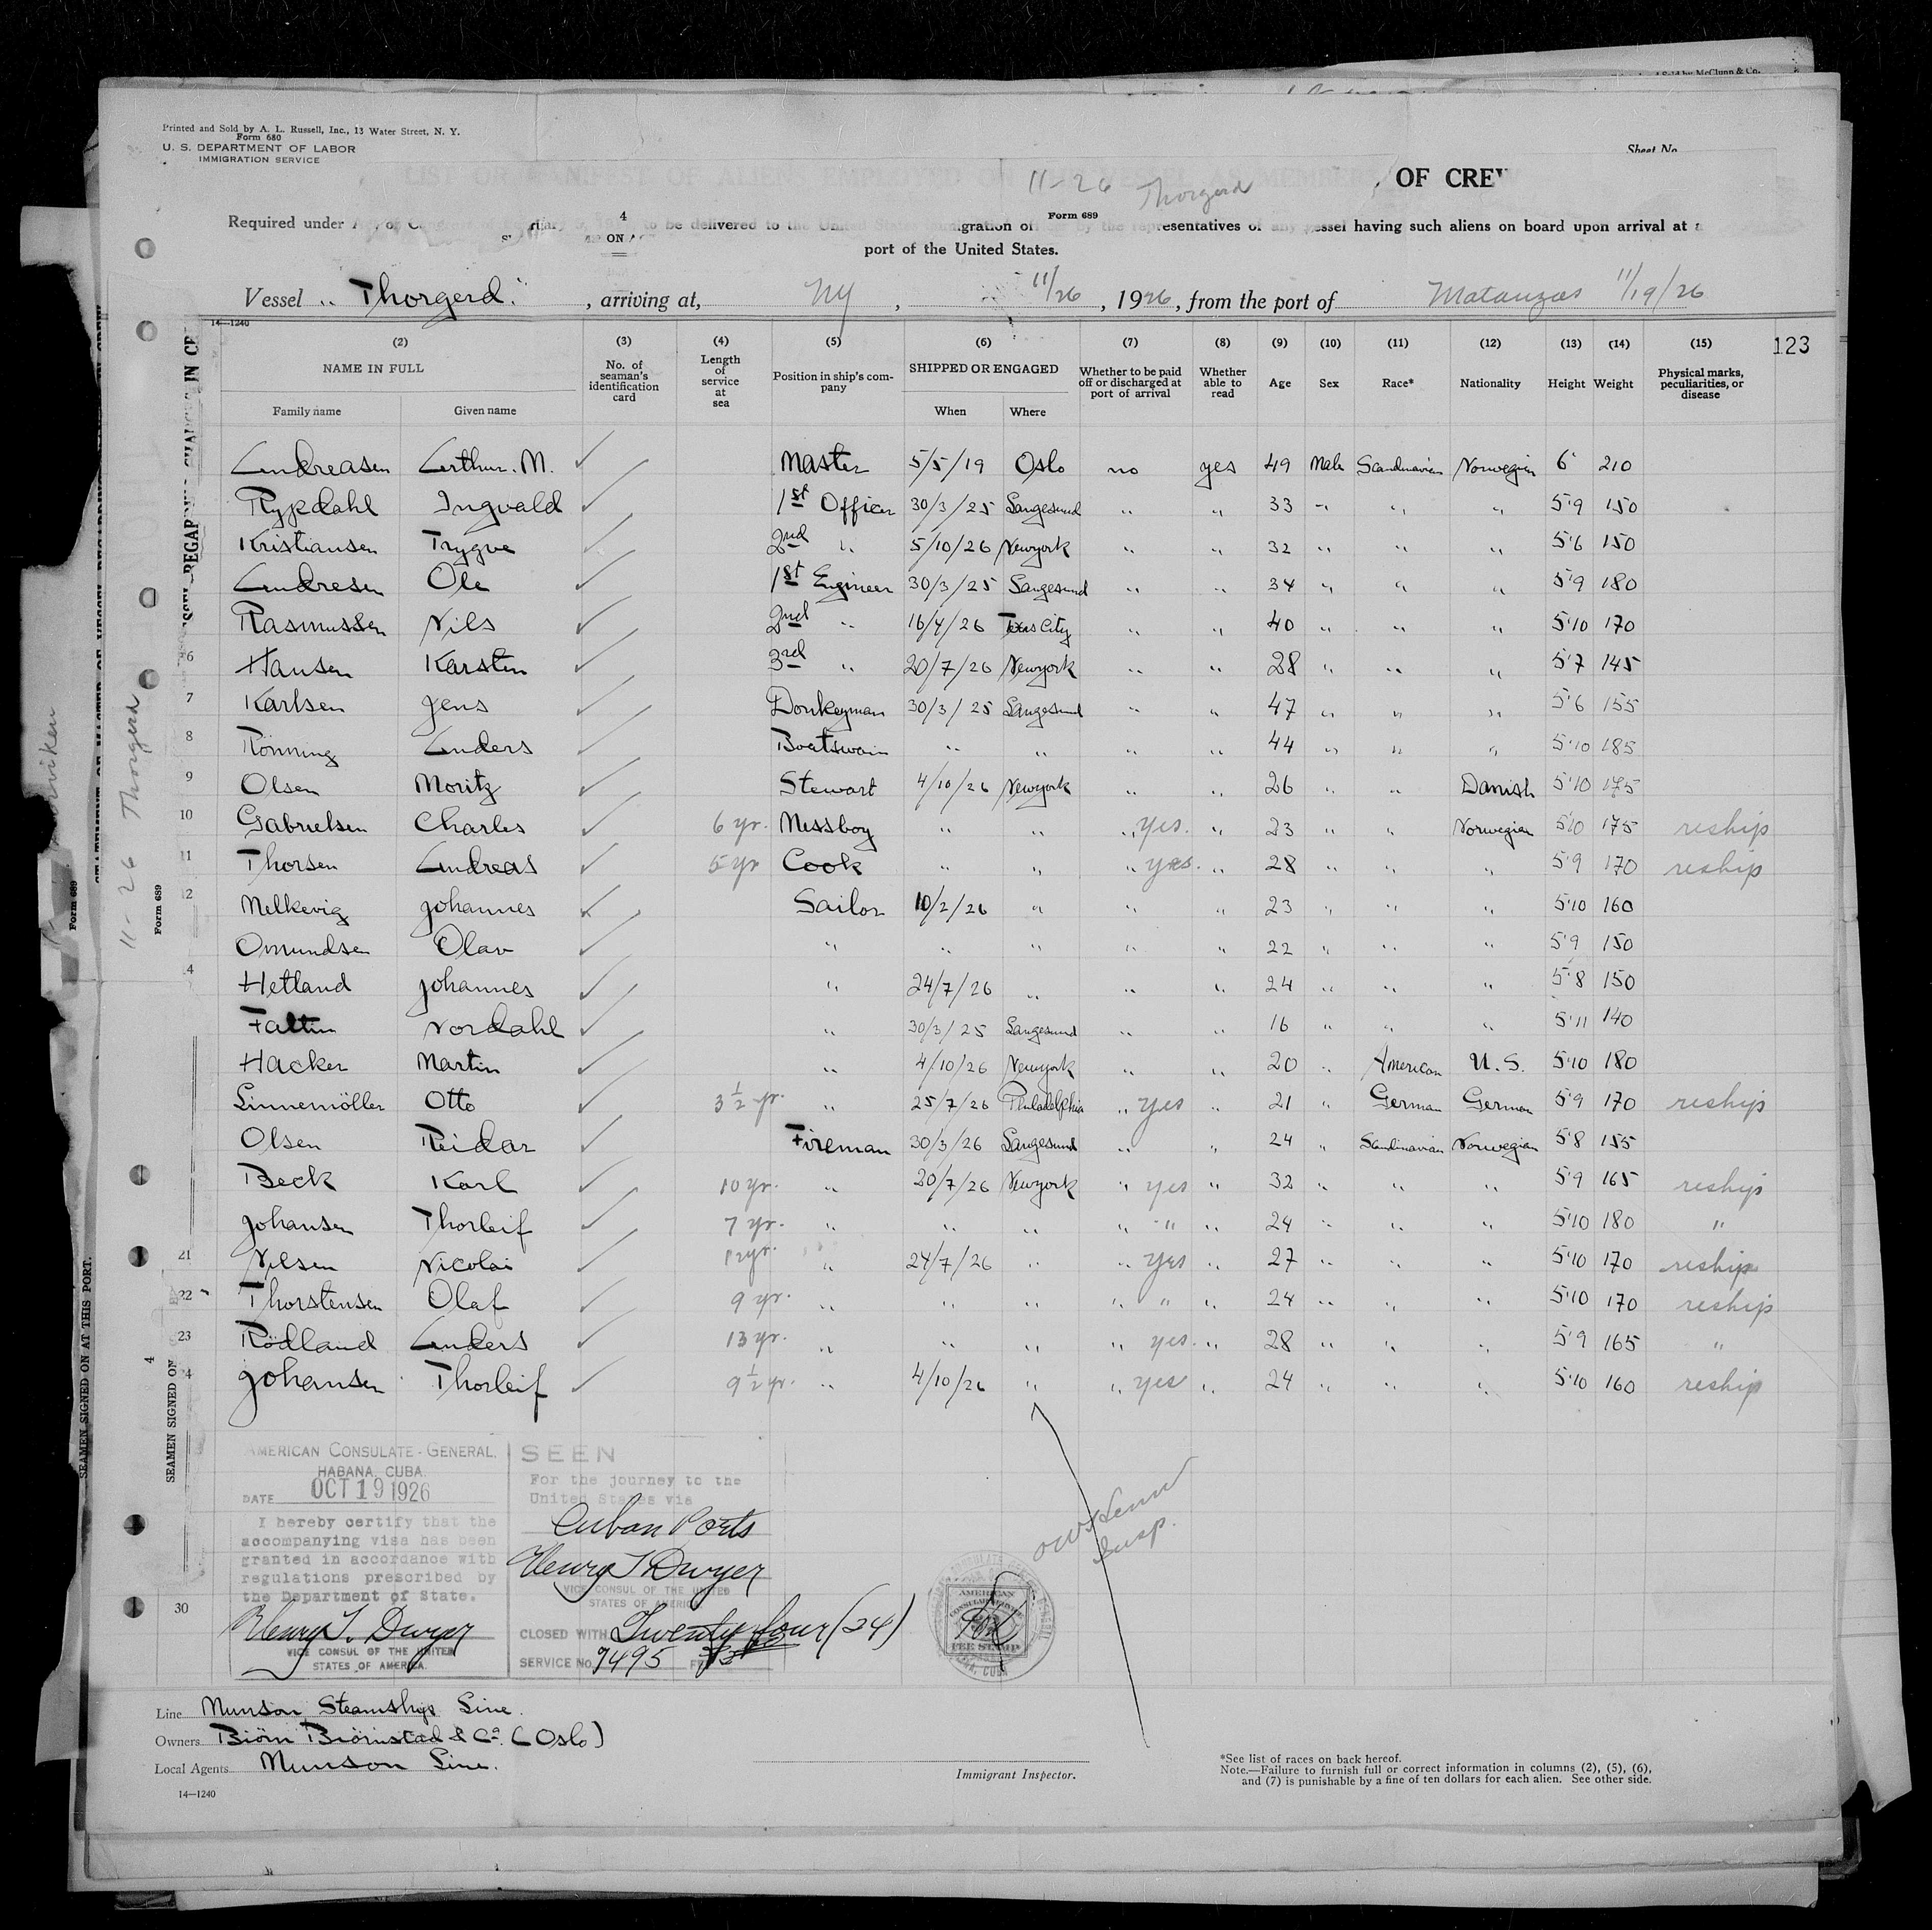 Printed and Sold by A. L. Russell, Inc., 13 Water Street, N. Y.
Form 680
U. S. DEPARTMENT OF LABOR
IMMIGRATION SERVICE
Sheet No
11-26 Thorgerd
OF CREW
4
Form 689
Required under
to be delivered to the United States
representatives of any vessel having such aliens on board upon arrival at a
port of the United States.
Vessel "Thorgerd." , arriving at, NY , 11/26 , 1926, from the port of Matanzas 11/19/26
14—1240
(2) (3) (4) (5) (6) (7) (8) (9) (10) (11) (12) (13) (14) (15) 123
NAME IN FULL No. of seaman's identification card Length of service at sea Position in ship's company SHIPPED OR ENGAGED Whether to be paid off or discharged at port of arrival Whether able to read Age Sex Race* Nationality Height Weight Physical marks, peculiarities, or disease
Family name Given name When Where
Andreasen Arthur. M. ✓ Master 5/5/19 Oslo no yes 49 Male Scandinavian Norwegian 6 210
Rypdahl Ingvald ✓ 1st Officer 30/3/25 Langesund " " 33 " " " 5'9 150
Kristiansen Trygve ✓ 2nd " 5/10/26 Newyork " " 32 " " " 5'6 150
Andresen Ole ✓ 1st Engineer 30/3/25 Langesund " " 34 " " " 5'9 180
Rasmussen Nils ✓ 2nd " 16/4/26 City " " 40 " " " 5'10 170
6 Hansen Karsten ✓ 3rd " 20/7/26 Newyork " " 28 " " " 5'7 145
7 Karlsen Jens ✓ Donkeyman 30/3/25 Langesund " " 47 " " " 5'6 155
8 Rönning Anders ✓ Boatswain " " " " 44 " " " 5'10 185
9 Olsen Moritz ✓ Stewart 4/10/26 Newyork " " 26 " " Danish 5'10 175
10 Gabrielsen Charles ✓ 6 yr. Messboy " " " yes. " 23 " " Norwegian 5'10 175 reship
11 Thorsen Andreas ✓ 5 yr Cook " " " yes. " 28 " " " 5'9 170 reship
12 Melkevig Johannes ✓ Sailor 10/2/26 " " " 23 " " " 5'10 160
Omundsen Olav ✓ " " " " " 22 " " " 5'9 150
14 Hetland Johannes ✓ " 24/7/26 " " " 24 " " " 5'8 150
Faltin Nordahl ✓ " 30/3/25 Langesund " " 16 " " " 5'11 140
Hacker Martin ✓ " 4/10/26 Newyork " " 20 " American U.S. 5'10 180
Linnemöller Otto ✓ 3 1/2 yr. " 25/7/26 Philadelphia " yes " 21 " German German 5'9 170 reship
Olsen Reidar ✓ Fireman 30/3/26 Langesund " " 24 " Scandinavian Norwegian 5'8 155
Beck Karl ✓ 10 yr. " 20/7/26 Newyork " yes " 32 " " " 5'9 165 reship
Johansen Thorleif ✓ 7 yr. " " " " " " 24 " " " 5'10 180 "
21 Nilsen Nicolai ✓ 12 yr. " 24/7/26 " " yes " 27 " " " 5'10 170 reship
22 Thorstensen Olaf ✓ 9 yr. " " " " " " 24 " " " 5'10 170 reship
23 Rödland Anders ✓ 13 yr. " " " " yes. " 28 " " " 5'9 165 "
24 Johansen Thorleif ✓ 9 1/2 yr. " 4/10/26 " " yes " 24 " " " 5'10 160 reship
30
AMERICAN CONSULATE-GENERAL,
HABANA, CUBA.
DATE OCT 19 1926
I hereby certify that the
accompanying visa has been
granted in accordance with
regulations prescribed by
the Department of State.
Henry T. Dwyer
VICE CONSUL OF THE UNITED
STATES OF AMERICA.
SEEN
For the journey to the
United States via
Cuban Ports
Henry T Dwyer
VICE CONSUL OF THE UNITED
STATES OF AMERICA
CLOSED WITH Twenty four (24)
SERVICE No. 7495
AMERICAN
CONSULAR SERVICE
FEE STAMP
Insp.
Line Munson Steamship Line.
Owners Biörn Biörnstad & Co. (Oslo)
Local Agents Munson Line.
Immigrant Inspector.
*See list of races on back hereof.
Note.—Failure to furnish full or correct information in columns (2), (5), (6),
and (7) is punishable by a fine of ten dollars for each alien. See other side.
14—1240
11-26 Thorgerd
Form 689
Form 689
SEAMEN SIGNED ON AT THIS PORT.
4
SEAMEN SIGNED ON